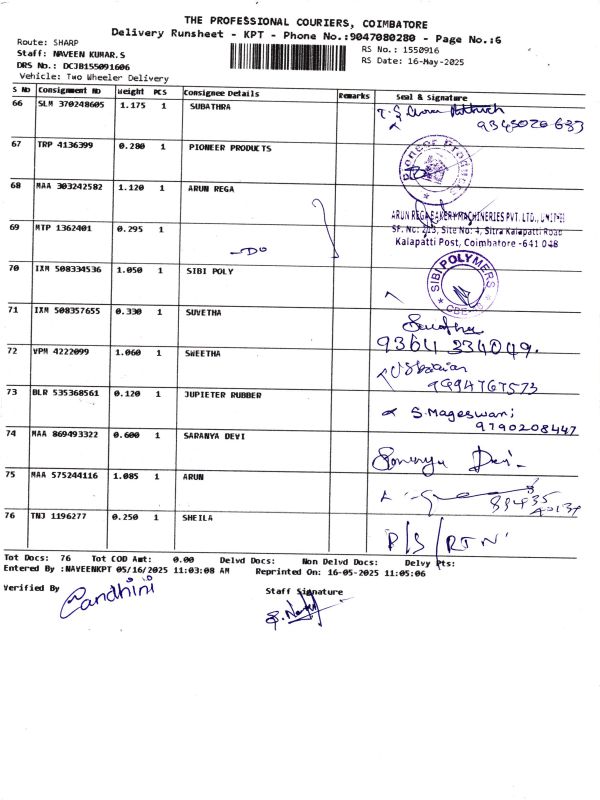 THE PROFESSIONAL COURIERS, COIMBATORE
Delivery Runsheet - KPT - Phone No.:9047080280 - Page No.:6
Route: SHARP
Staff: NAVEEN KUMAR.S
DRS No.: DCJB155091606
Vehicle: Two Wheeler Delivery
RS No.: 1550916
RS Date: 16-May-2025
S No Consignment No Weight PCS Consignee Details Remarks Seal & Signature
66 SLM 370248605 1.175 1 SUBATHRA
67 TRP 4136399 0.280 1 PIONEER PRODUCTS
Pioneer Products
68 MAA 303242582 1.120 1 ARUN REGA
ARUN REGA BAKERY MACHINERIES PVT. LTD.,
69 MTP 1362401 0.295 1 -DO
Site No: 4, Sitra Kalapatti Road
Kalapatti Post, Coimbatore -641 048
70 IXM 508334536 1.050 1 SIBI POLY
SIBI POLYMERS
71 IXM 508357655 0.330 1 SUVETHA
9364 334049.
72 VPM 4222099 1.060 1 SWEETHA
9994767573
73 BLR 535368561 0.120 1 JUPIETER RUBBER
S.Mageswari
9790208447
74 MAA 869493322 0.600 1 SARANYA DEVI
Saranya Devi
75 MAA 575244116 1.085 1 ARUN
76 TNJ 1196277 0.250 1 SHEILA
P/S/RTN
Tot Docs: 76 Tot COD Amt: 0.00 Delvd Docs: Non Delvd Docs: Delvy Pts:
Entered By :NAVEENKPT 05/16/2025 11:03:08 AM Reprinted On: 16-05-2025 11:05:06
Verified By Gandhini
Staff Signature